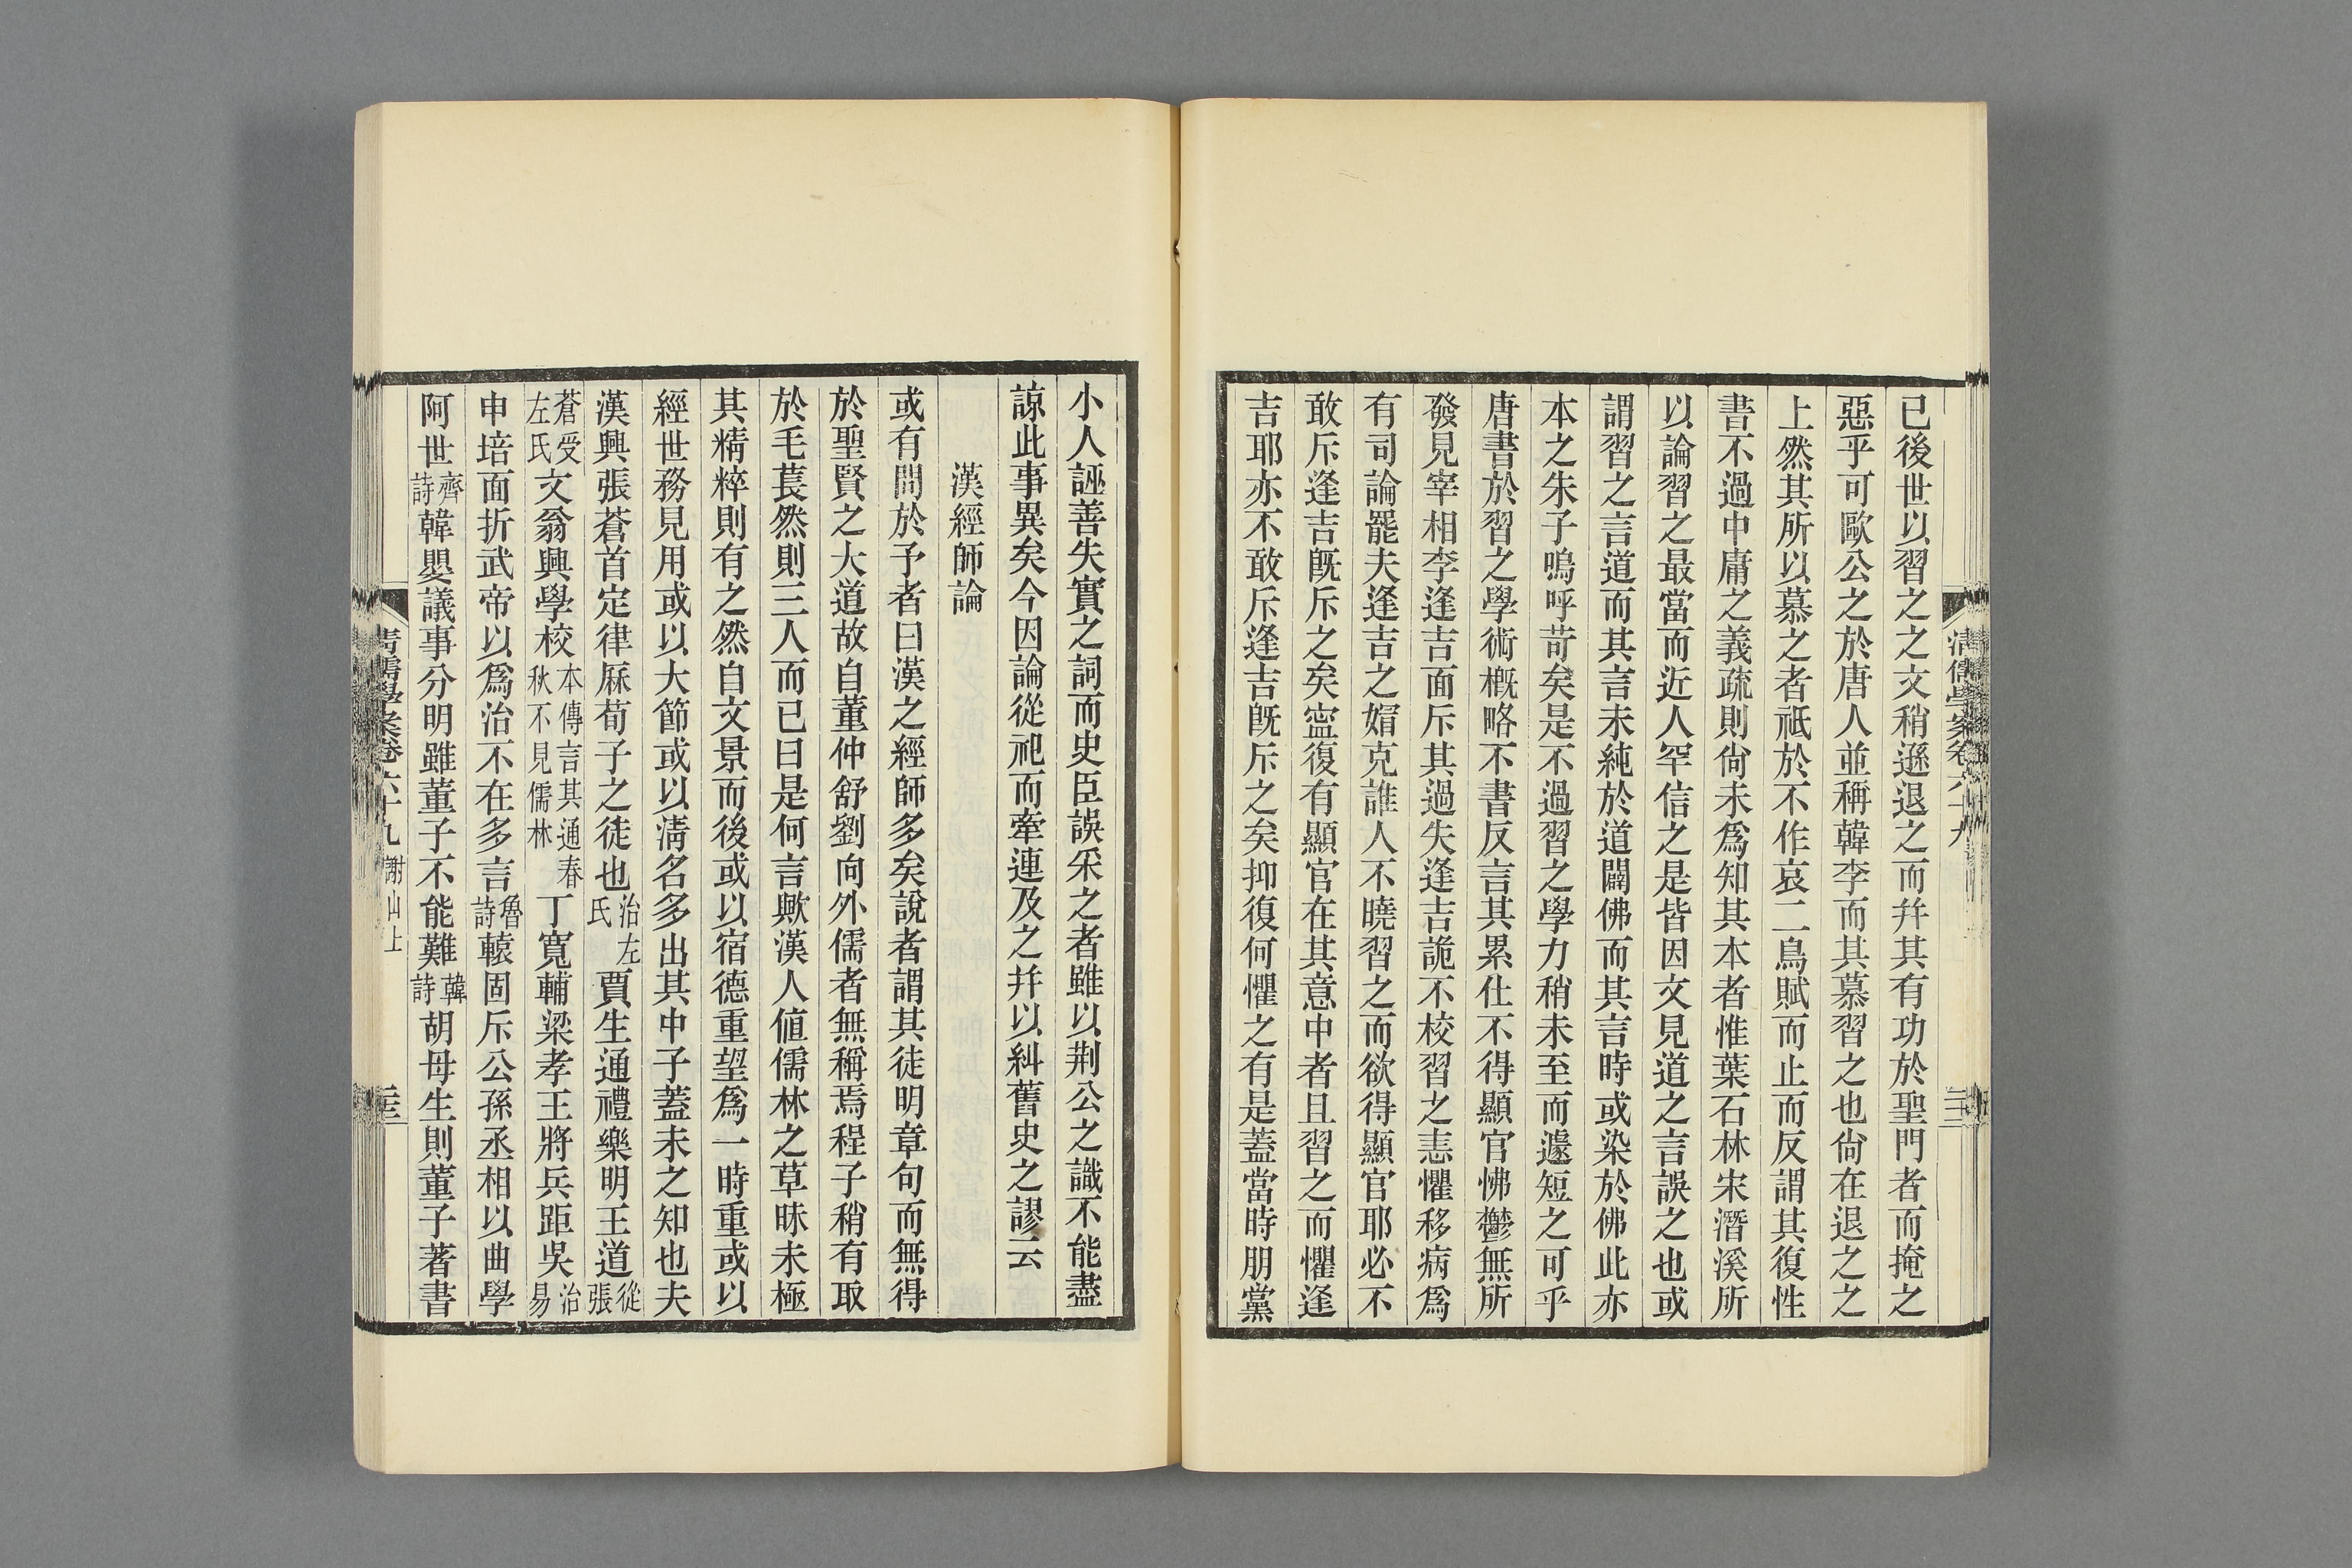 已後世以習之之文稍遜退之而幷其有功於聖門者而掩之
惡乎可歐公之於唐人並稱韓李而其慕習之也尙在退之之
上然其所以慕之者祇於不作哀二鳥賦而止而反謂其復性
書不過中庸之義疏則尙未爲知其本者惟葉石林宋潛溪所
以論習之最當而近人罕信之是皆因文見道之言誤之也或
謂習之言道而其言未純於道闢佛而其言時或染於佛此亦
本之朱子嗚呼苛矣是不過習之學力稍未至而遽短之可乎
唐書於習之學術槪略不書反言其累仕不得顯官怫鬱無所
發見宰相李逢吉面斥其過失逢吉詭不校習之恚懼移病爲
有司論罷夫逢吉之媢克誰人不曉習之而欲得顯官耶必不
敢斥逢吉旣斥之矣寍復有顯官在其意中者且習之而懼逢
吉耶亦不敢斥逢吉旣斥之矣抑復何懼之有是蓋當時朋黨
清儒學案卷六十九
小人誣善失實之詞而史臣誤采之者雖以荆公之識不能盡
諒此事異矣今因論從祀而牽連及之幷以糾舊史之謬云
漢經師論
或有問於予者曰漢之經師多矣說者謂其徒明章句而無得
於聖賢之大道故自董仲舒劉向外儒者無稱焉程子稍有取
於毛萇然則三人而已曰是何言歟漢人値儒林之草昧未極
其精粹則有之然自文景而後或以宿德重望爲一時重或以
經世務見用或以大節或以淸名多出其中子蓋未之知也夫
漢興張蒼首定律厤荀子之徒也治左氏賈生通禮樂明王道從張
蒼受左氏文翁興學校本傳言其通春秋不見儒林丁寬輔梁孝王將兵距吳治易
申培面折武帝以爲治不在多言魯詩轅固斥公孫丞相以曲學
阿世齊詩韓嬰議事分明雖董子不能難韓詩胡母生則董子著書
清儒學案卷六十九 謝山上 三